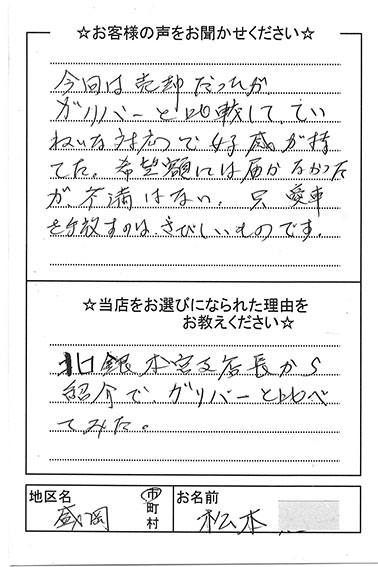 ☆お客様の声をお聞かせください☆
今回は売却だったが
ガリバーと比較して、てい
ねいな対応で好感が持
てた。希望額には届かなかった
が不満はない。只愛車
を手放すのは、さびしいものです。
☆当店をお選びになられた理由を
お教えください☆
北銀本宮支店長から
紹介で、ガリバーと比べ
てみた。
地区名
盛岡
市
町
村
お名前
松本